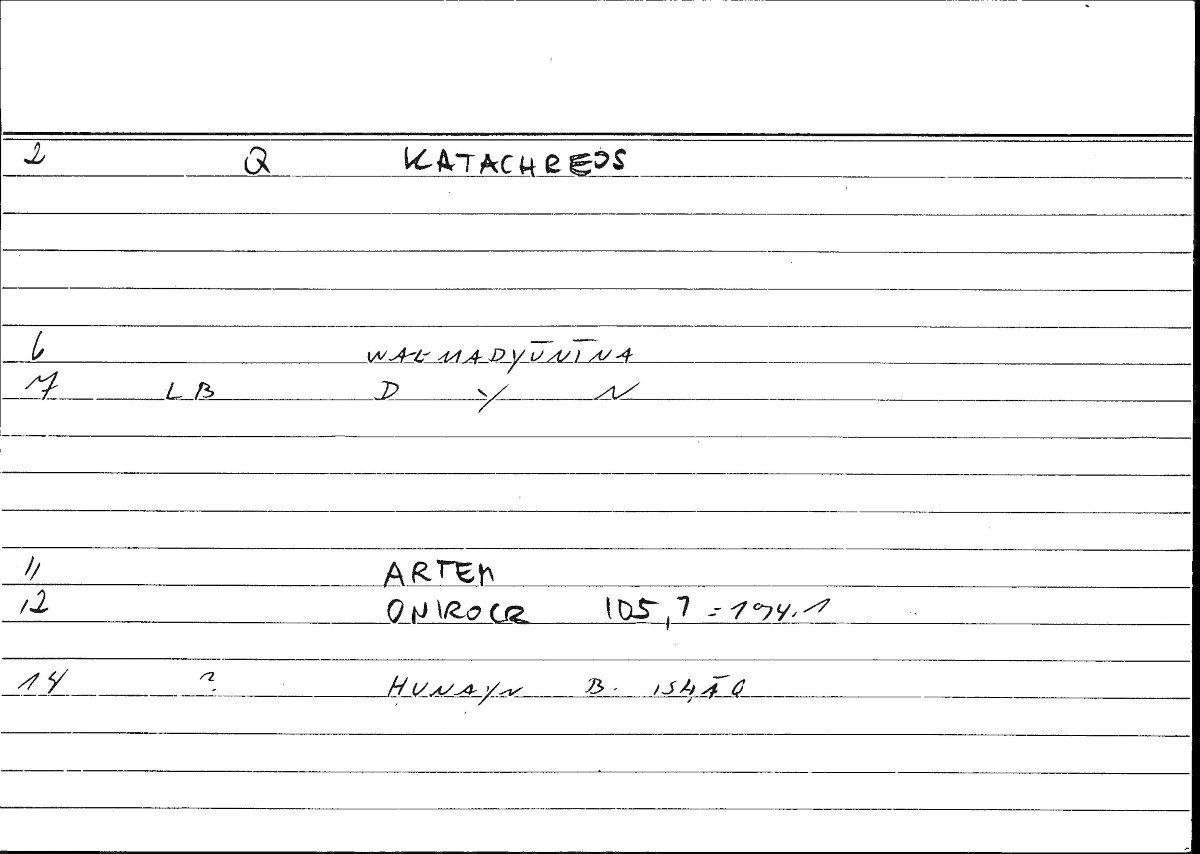 2 Q KATACHREOS
6 WAL-MADYŪNĪNA
7 LB D Y N
11 ARTEM
12 ONIROCR 105,7 = 194.1
14 ? ḤUNAYN B. ISḤĀQ